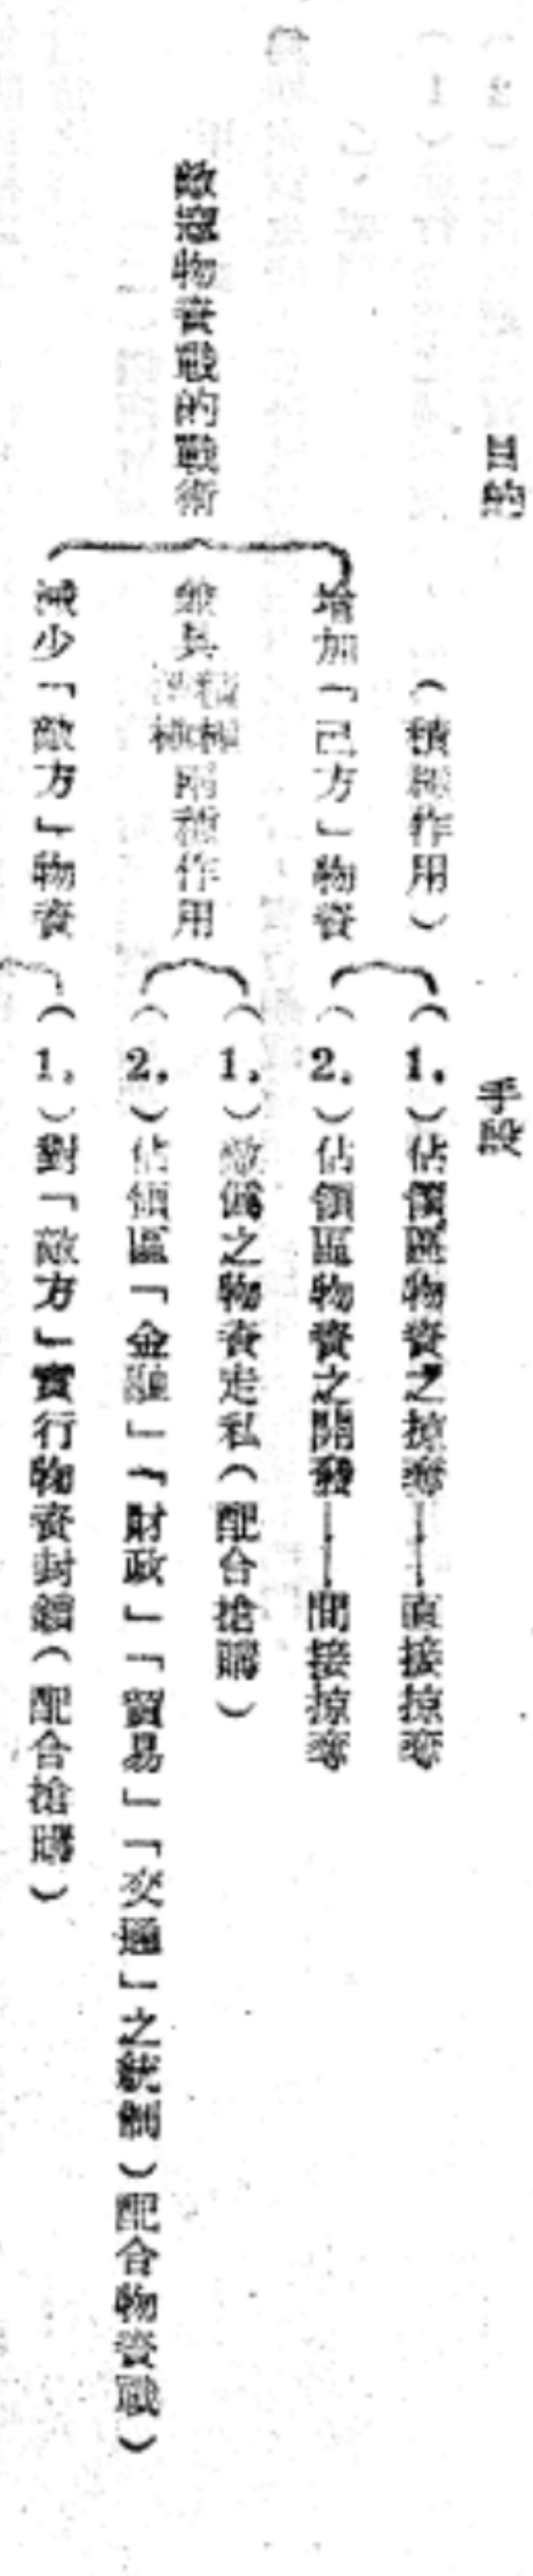 目的
手段
（積極作用）
（1.）佔領區物資之掠奪——直接掠奪
增加「己方」物資
（2.）佔領區物資之開發——間接掠奪
敵寇物資戰的戰術
兼具積極消極兩種作用
（1.）敵僞之物資走私（配合搶購）
（2.）佔領區「金融」「財政」「貿易」「交通」之統制）配合物資戰）
減少「敵方」物資
（1.）對「敵方」實行物資封鎖（配合搶購）